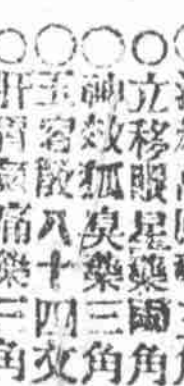 ○立移眼星藥兩角
○神效狐臭藥三角
○玉容散八十四文
○肝胃氣痛藥三角